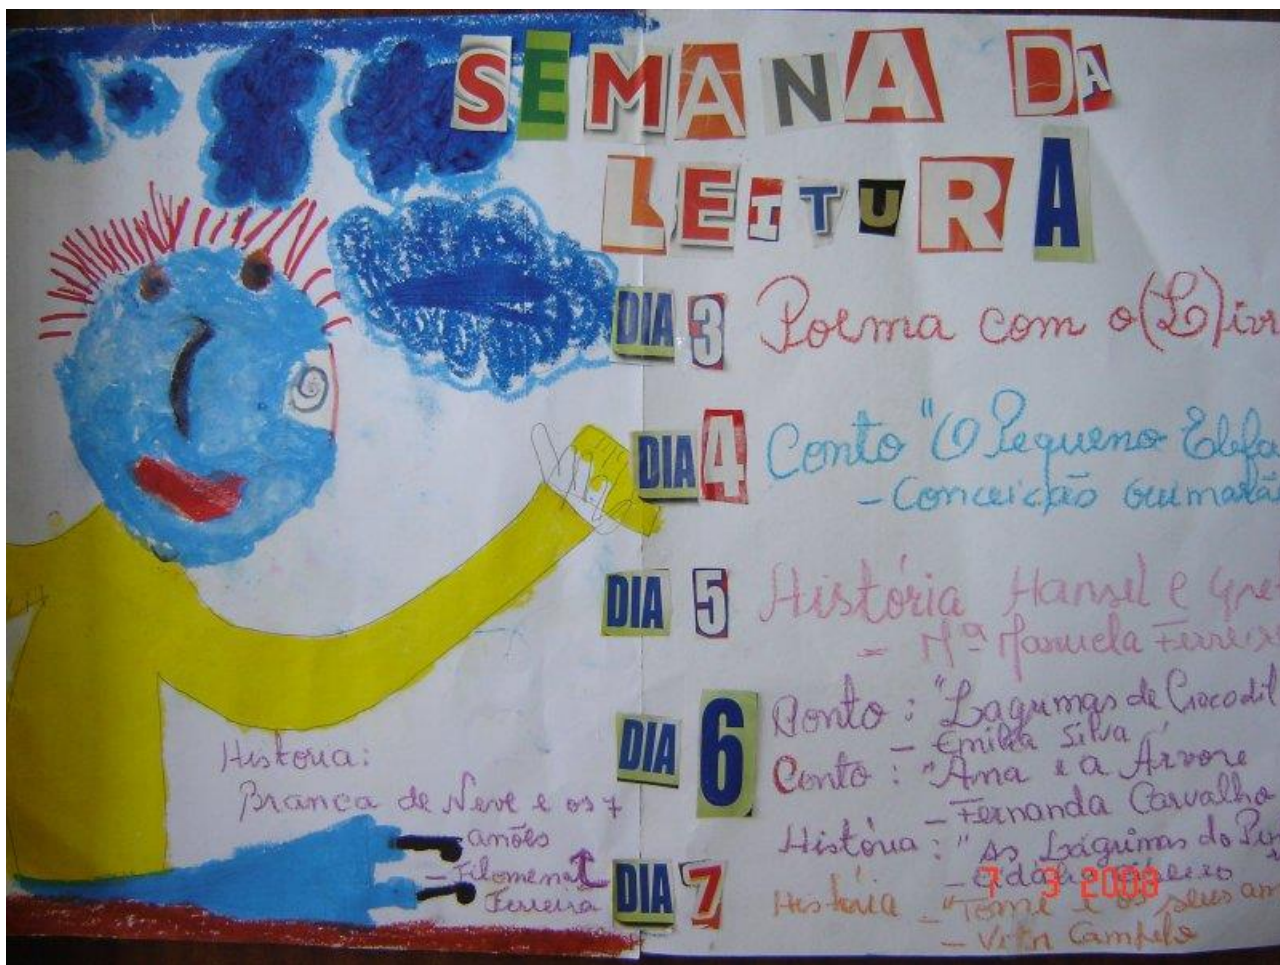 SEMANA DA
LEITURA
DIA 3 Poema com o (L)ivr
DIA 4 Conto "O Pequeno Elefa
- Conceição Guimarã
DIA 5 História Hansel e Gre
- Mª Manuela Ferreir
DIA 6 Conto: "Lagrimas de Crocodil
- Emília Silva
Conto: "Ana e a Árvore
- Fernanda Carvalho
História: "As Lágrimas do
DIA 7 História - "Tomé e os seus am
- Vitor Campelo
História:
Branca de Neve e os 7
anões
- Filomena
Ferreira
7 3 2008